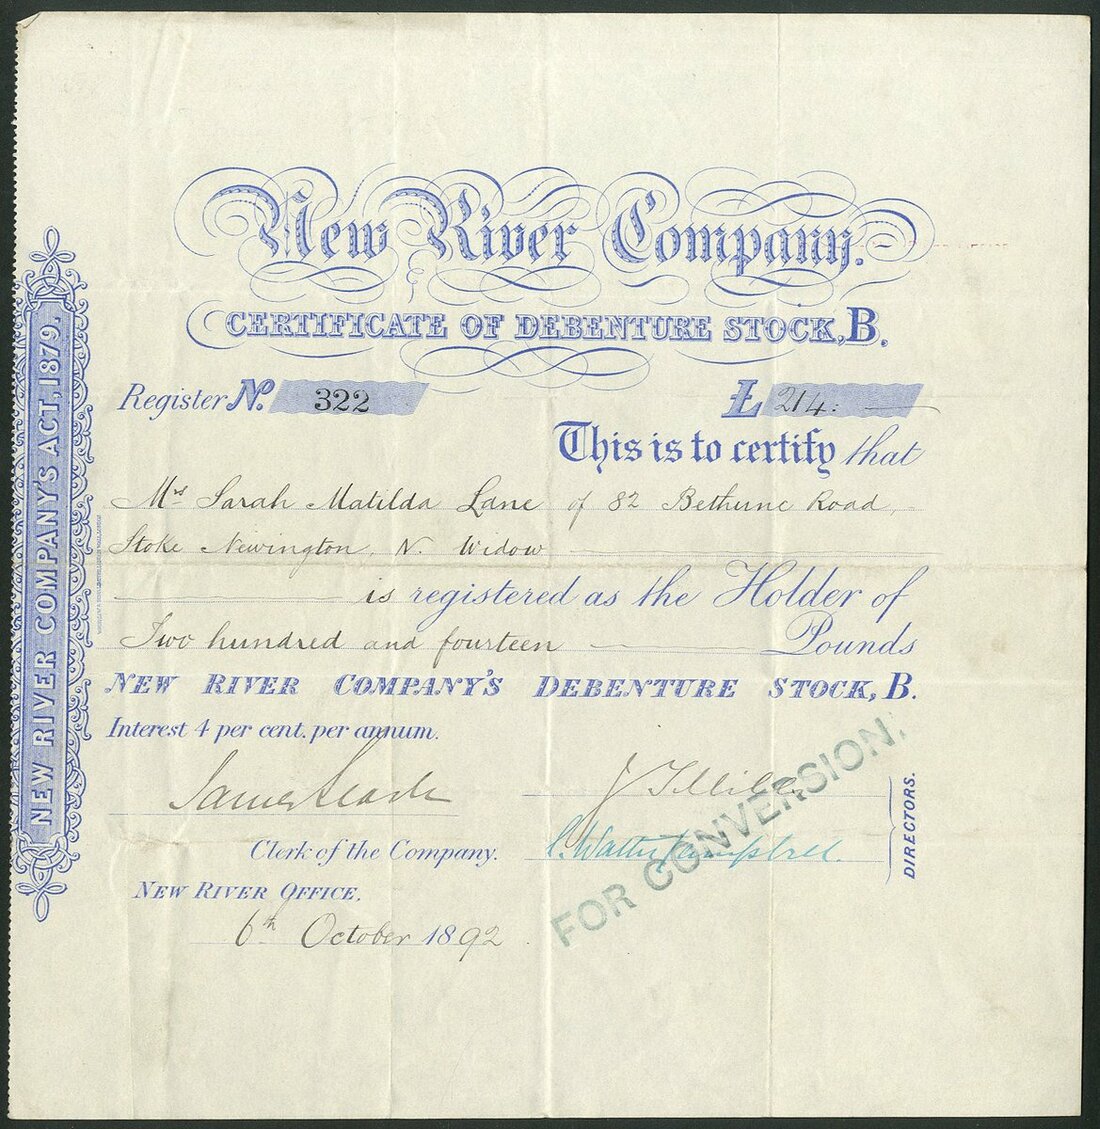 New River Company.
CERTIFICATE OF DEBENTURE STOCK, B.
NEW RIVER COMPANY'S ACT, 1879,
Register No. 322 £ 214:
This is to certify that
Mrs Sarah Matilda Lane of 82 Bethune Road,
Stoke Newington, N. Widow
is registered as the Holder of
Two hundred and fourteen Pounds
NEW RIVER COMPANY'S DEBENTURE STOCK, B.
Interest 4 per cent. per annum.
James Searle
DIRECTORS.
Clerk of the Company.
NEW RIVER OFFICE,
6th October 1892
FOR CONVERSION.